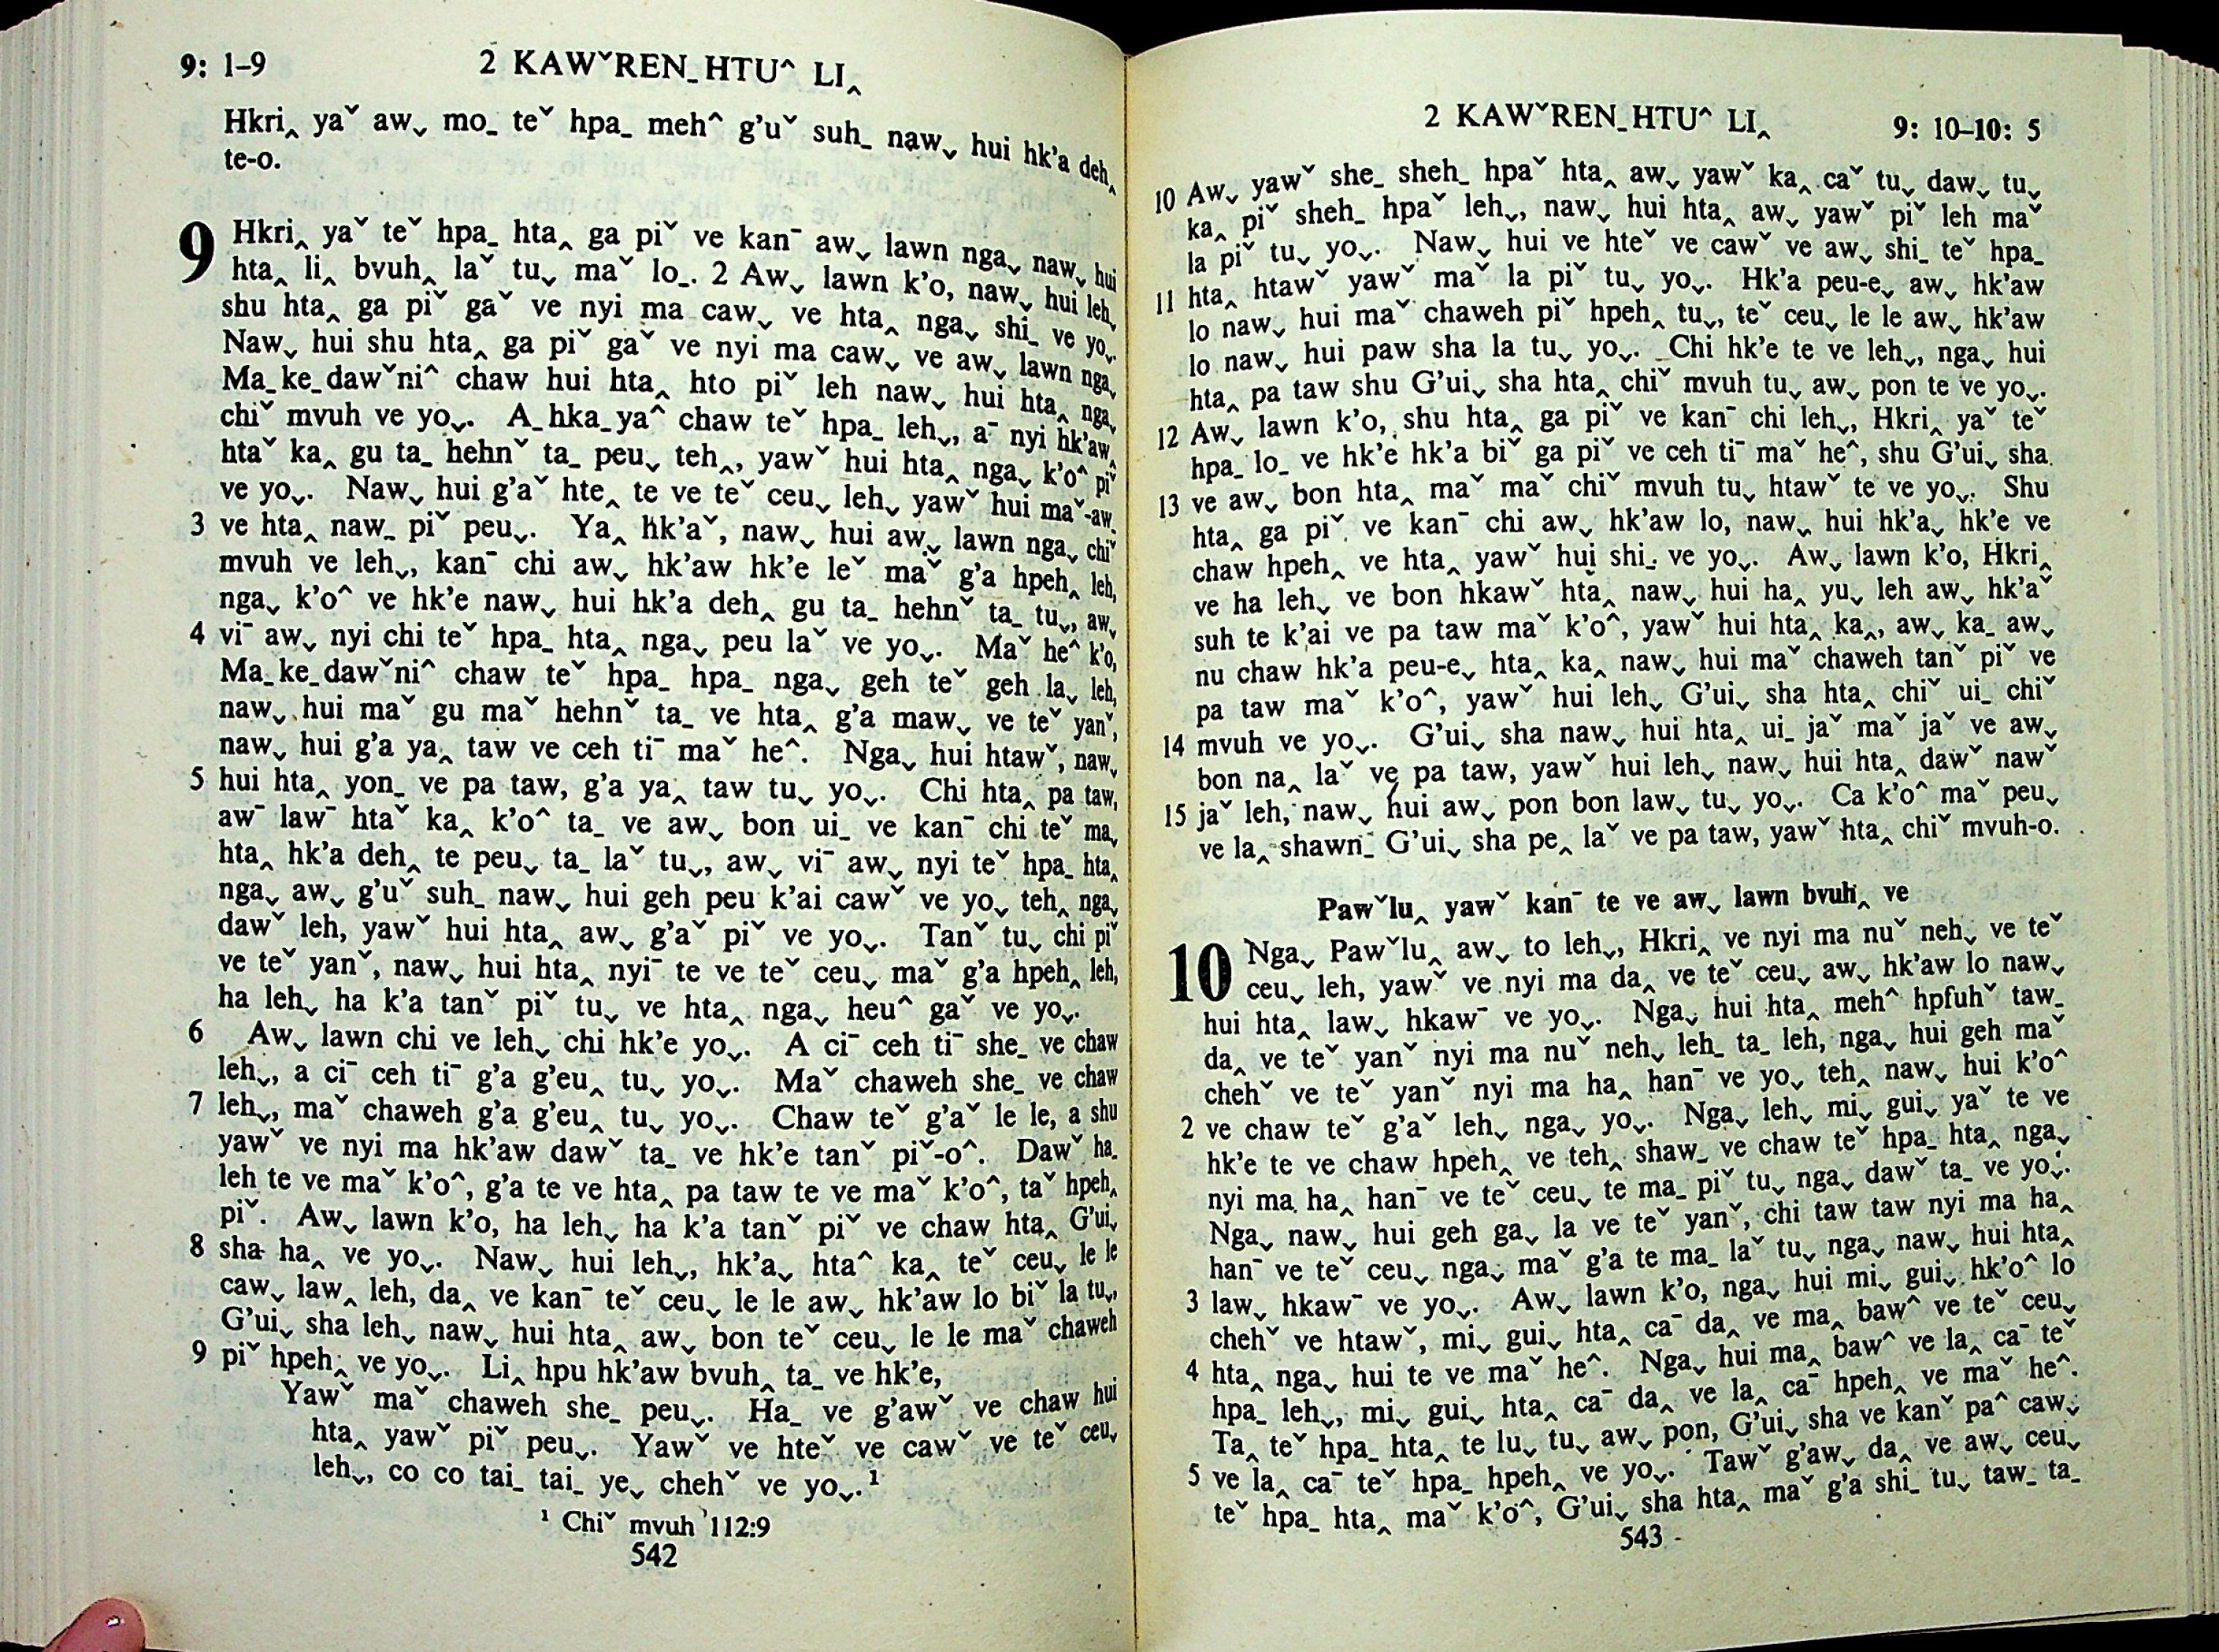 9: 1–9
2 KAWˇREN_HTU^ LI‸
Hkri‸ yaˇ aw⌄ mo_ teˇ hpa_ meh^ g'uˇ suh_ naw⌄ hui hk'a deh‸
te-o.
9 Hkri‸ yaˇ teˇ hpa_ hta‸ ga piˇ ve kan¯ aw⌄ lawn nga⌄ naw⌄ hui
hta‸ li‸ bvuh‸ laˇ tu⌄ maˇ lo_. 2 Aw⌄ lawn k'o, naw⌄ hui leh⌄
shu hta‸ ga piˇ gaˇ ve nyi ma caw⌄ ve hta‸ nga⌄ shi_ ve yo⌄.
Naw⌄ hui shu hta‸ ga piˇ gaˇ ve nyi ma caw⌄ ve aw⌄ lawn nga⌄
Ma_ke_dawˇni^ chaw hui hta‸ hto piˇ leh naw⌄ hui hta‸ nga⌄
chiˇ mvuh ve yo⌄. A_hka_ya^ chaw teˇ hpa_ leh⌄, a¯ nyi hk'aw‸
htaˇ ka‸ gu ta_ hehnˇ ta_ peu⌄ teh‸, yawˇ hui hta‸ nga⌄ k'o^ piˇ
ve yo⌄. Naw⌄ hui g'aˇ hte‸ te ve teˇ ceu⌄ leh⌄ yawˇ hui maˇ-aw⌄
3 ve hta‸ naw_ piˇ peu⌄. Ya‸ hk'aˇ, naw⌄ hui aw⌄ lawn nga⌄ chiˇ
mvuh ve leh⌄, kan¯ chi aw⌄ hk'aw hk'e leˇ maˇ g'a hpeh‸ leh,
nga⌄ k'o^ ve hk'e naw⌄ hui hk'a deh‸ gu ta_ hehnˇ ta_ tu⌄, aw⌄
4 vi¯ aw⌄ nyi chi teˇ hpa_ hta‸ nga⌄ peu laˇ ve yo⌄. Maˇ he^ k'o,
Ma_ke_dawˇni^ chaw teˇ hpa_ hpa_ nga⌄ geh teˇ geh la⌄ leh,
naw⌄ hui maˇ gu maˇ hehnˇ ta_ ve hta‸ g'a maw⌄ ve teˇ yanˇ,
naw⌄ hui g'a ya‸ taw ve ceh ti¯ maˇ he^. Nga⌄ hui htawˇ, naw⌄
5 hui hta‸ yon_ ve pa taw, g'a ya‸ taw tu⌄ yo⌄. Chi hta‸ pa taw,
aw¯ law¯ htaˇ ka‸ k'o^ ta_ ve aw⌄ bon ui_ ve kan¯ chi teˇ ma‸
hta‸ hk'a deh‸ te peu⌄ ta_ laˇ tu⌄, aw⌄ vi¯ aw⌄ nyi teˇ hpa_ hta‸
nga⌄ aw⌄ g'uˇ suh_ naw⌄ hui geh peu k'ai cawˇ ve yo⌄ teh‸ nga⌄
dawˇ leh, yawˇ hui hta‸ aw⌄ g'aˇ piˇ ve yo⌄. Tanˇ tu⌄ chi piˇ
ve teˇ yanˇ, naw⌄ hui hta‸ nyi¯ te ve teˇ ceu⌄ maˇ g'a hpeh‸ leh,
ha leh⌄ ha k'a tanˇ piˇ tu⌄ ve hta‸ nga⌄ heu^ gaˇ ve yo⌄.
6 Aw⌄ lawn chi ve leh⌄ chi hk'e yo⌄. A ci¯ ceh ti¯ she_ ve chaw
leh⌄, a ci¯ ceh ti¯ g'a g'eu‸ tu⌄ yo⌄. Maˇ chaweh she_ ve chaw
7 leh⌄, maˇ chaweh g'a g'eu‸ tu⌄ yo⌄. Chaw teˇ g'aˇ le le, a shu
yawˇ ve nyi ma hk'aw dawˇ ta_ ve hk'e tanˇ piˇ-o^. Dawˇ ha_
leh te ve maˇ k'o^, g'a te ve hta‸ pa taw te ve maˇ k'o^, taˇ hpeh‸
piˇ. Aw⌄ lawn k'o, ha leh⌄ ha k'a tanˇ piˇ ve chaw hta‸ G'ui⌄
8 sha ha‸ ve yo⌄. Naw⌄ hui leh⌄, hk'a⌄ hta^ ka‸ teˇ ceu⌄ le le
caw⌄ law‸ leh, da‸ ve kan¯ teˇ ceu⌄ le le aw⌄ hk'aw lo biˇ la tu⌄,
G'ui⌄ sha leh⌄ naw⌄ hui hta‸ aw⌄ bon teˇ ceu⌄ le le maˇ chaweh
9 piˇ hpeh‸ ve yo⌄. Li‸ hpu hk'aw bvuh‸ ta_ ve hk'e,
Yawˇ maˇ chaweh she_ peu⌄. Ha_ ve g'awˇ ve chaw hui
hta‸ yawˇ piˇ peu⌄. Yawˇ ve hteˇ ve cawˇ ve teˇ ceu⌄
leh⌄, co co tai_ tai_ ye⌄ chehˇ ve yo⌄.¹
¹ Chiˇ mvuh 112:9
542
2 KAWˇREN_HTU^ LI‸
9: 10–10: 5
10 Aw⌄ yawˇ she_ sheh_ hpaˇ hta‸ aw⌄ yawˇ ka‸ caˇ tu⌄ daw⌄ tu⌄
ka‸ piˇ sheh_ hpaˇ leh⌄, naw⌄ hui hta‸ aw⌄ yawˇ piˇ leh maˇ
la piˇ tu⌄ yo⌄. Naw⌄ hui ve hteˇ ve cawˇ ve aw⌄ shi_ teˇ hpa_
11 hta‸ htawˇ yawˇ maˇ la piˇ tu⌄ yo⌄. Hk'a peu-e⌄ aw⌄ hk'aw
lo naw⌄ hui maˇ chaweh piˇ hpeh‸ tu⌄, teˇ ceu⌄ le le aw⌄ hk'aw
lo naw⌄ hui paw sha la tu⌄ yo⌄. Chi hk'e te ve leh⌄, nga⌄ hui
hta‸ pa taw shu G'ui⌄ sha hta‸ chiˇ mvuh tu⌄ aw⌄ pon te ve yo⌄.
12 Aw⌄ lawn k'o, shu hta‸ ga piˇ ve kan¯ chi leh⌄, Hkri‸ yaˇ teˇ
hpa_ lo_ ve hk'e hk'a biˇ ga piˇ ve ceh ti¯ maˇ he^, shu G'ui⌄ sha
13 ve aw⌄ bon hta‸ maˇ maˇ chiˇ mvuh tu⌄ htawˇ te ve yo⌄. Shu
hta‸ ga piˇ ve kan¯ chi aw⌄ hk'aw lo, naw⌄ hui hk'a⌄ hk'e ve
chaw hpeh‸ ve hta‸ yawˇ hui shi_ ve yo⌄. Aw⌄ lawn k'o, Hkri‸
ve ha leh⌄ ve bon hkawˇ hta‸ naw⌄ hui ha‸ yu⌄ leh aw⌄ hk'aˇ
suh te k'ai ve pa taw maˇ k'o^, yawˇ hui hta‸ ka‸, aw⌄ ka_ aw⌄
nu chaw hk'a peu-e⌄ hta‸ ka‸ naw⌄ hui maˇ chaweh tanˇ piˇ ve
pa taw maˇ k'o^, yawˇ hui leh⌄ G'ui⌄ sha hta‸ chiˇ ui_ chiˇ
14 mvuh ve yo⌄. G'ui⌄ sha naw⌄ hui hta‸ ui_ jaˇ maˇ jaˇ ve aw⌄
bon na‸ laˇ ve pa taw, yawˇ hui leh⌄ naw⌄ hui hta‸ dawˇ nawˇ
15 jaˇ leh, naw⌄ hui aw⌄ pon bon law⌄ tu⌄ yo⌄. Ca k'o^ maˇ peu⌄
ve la‸ shawn_ G'ui⌄ sha pe‸ laˇ ve pa taw, yawˇ hta‸ chiˇ mvuh-o.
Pawˇlu‸ yawˇ kan¯ te ve aw⌄ lawn bvuh‸ ve
10 Nga⌄ Pawˇlu‸ aw⌄ to leh⌄, Hkri‸ ve nyi ma nuˇ neh⌄ ve teˇ
ceu⌄ leh, yawˇ ve nyi ma da‸ ve teˇ ceu⌄ aw⌄ hk'aw lo naw⌄
hui hta‸ law⌄ hkaw¯ ve yo⌄. Nga⌄ hui hta‸ meh^ hpfuhˇ taw_
da‸ ve teˇ yanˇ nyi ma nuˇ neh⌄ leh_ ta_ leh, nga⌄ hui geh maˇ
chehˇ ve teˇ yanˇ nyi ma ha‸ han¯ ve yo⌄ teh‸ naw⌄ hui k'o^
2 ve chaw teˇ g'aˇ leh⌄ nga⌄ yo⌄. Nga⌄ leh⌄ mi⌄ gui⌄ yaˇ te ve
hk'e te ve chaw hpeh‸ ve teh‸ shaw_ ve chaw teˇ hpa_ hta‸ nga⌄
nyi ma ha‸ han¯ ve teˇ ceu⌄ te ma_ piˇ tu⌄ nga⌄ dawˇ ta_ ve yo⌄.
Nga⌄ naw⌄ hui geh ga⌄ la ve teˇ yanˇ, chi taw taw nyi ma ha‸
han¯ ve teˇ ceu⌄ nga⌄ maˇ g'a te ma_ laˇ tu⌄ nga⌄ naw⌄ hui hta‸
3 law⌄ hkaw¯ ve yo⌄. Aw⌄ lawn k'o, nga⌄ hui mi⌄ gui⌄ hk'o^ lo
chehˇ ve htawˇ, mi⌄ gui⌄ hta‸ ca¯ da‸ ve ma‸ baw^ ve teˇ ceu⌄
4 hta‸ nga⌄ hui te ve maˇ he^. Nga⌄ hui ma‸ baw^ ve la‸ ca¯ teˇ
hpa_ leh⌄, mi⌄ gui⌄ hta‸ ca¯ da‸ ve la‸ ca¯ hpeh‸ ve maˇ he^.
Ta‸ teˇ hpa_ hta‸ te lu⌄ tu⌄ aw⌄ pon, G'ui⌄ sha ve kanˇ pa^ caw⌄
5 ve la‸ ca¯ teˇ hpa_ hpeh‸ ve yo⌄. Tawˇ g'aw⌄ da‸ ve aw⌄ ceu⌄
teˇ hpa_ hta‸ maˇ k'o^, G'ui⌄ sha hta‸ maˇ g'a shi_ tu⌄ taw_ ta_
543